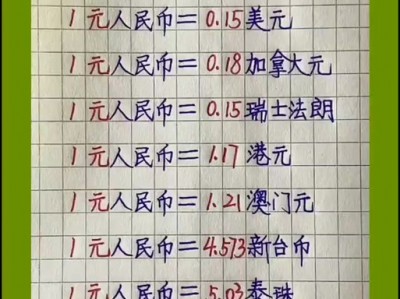 1元人民币=0.15美元
1元人民币=0.18加拿大元
1元人民币=0.15瑞士法朗
1元人民币=1.17港元
1元人民币=1.21澳门元
1元人民币=4.573新台币
1元人民币=5.03泰珠